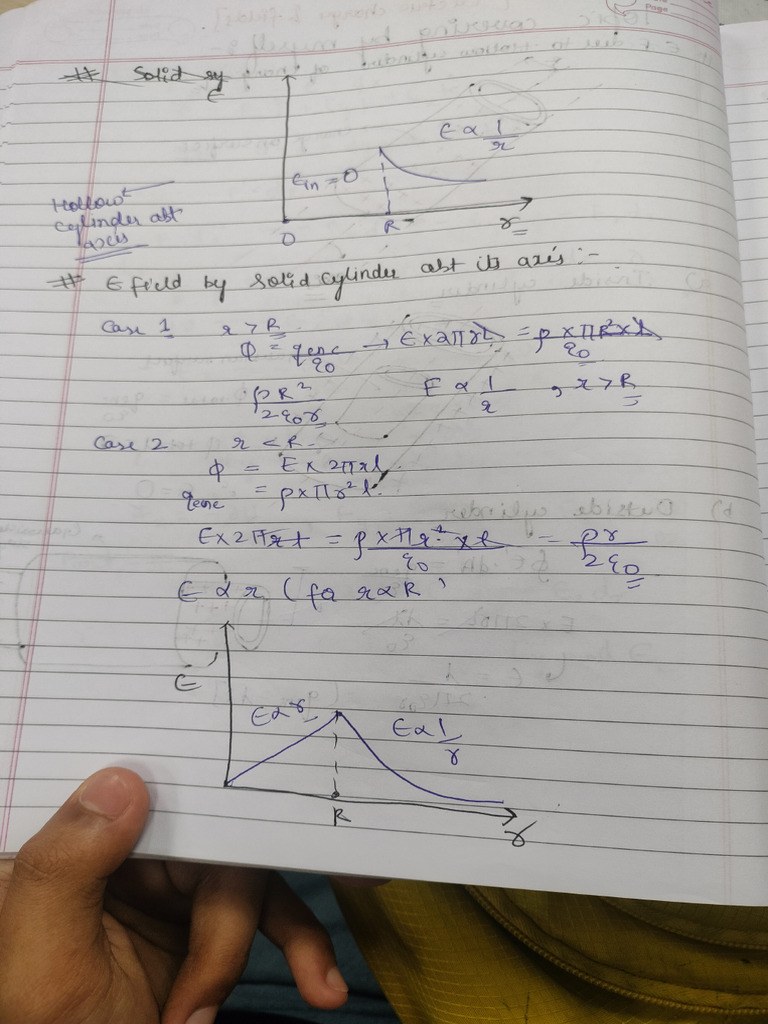 Page
# Solid sy
E
E ∝ 1/r
Ein = 0
Hollow
cylinder abt
axis
O R r
# E field by solid cylinder abt its axis :-
Case 1 r > R
Φ = qenc/ε0 → E × 2πrl = ρ × πR² × l/ε0
ρR²/2ε0r E ∝ 1/r , r > R
Case 2 r < R
Φ = E × 2πrl
qenc = ρ × πr²l
E × 2πrl = ρ × πr² × l/ε0 = ρr/2ε0
E ∝ r (for r ∝ R)
E
E ∝ r E ∝ 1/r
R r